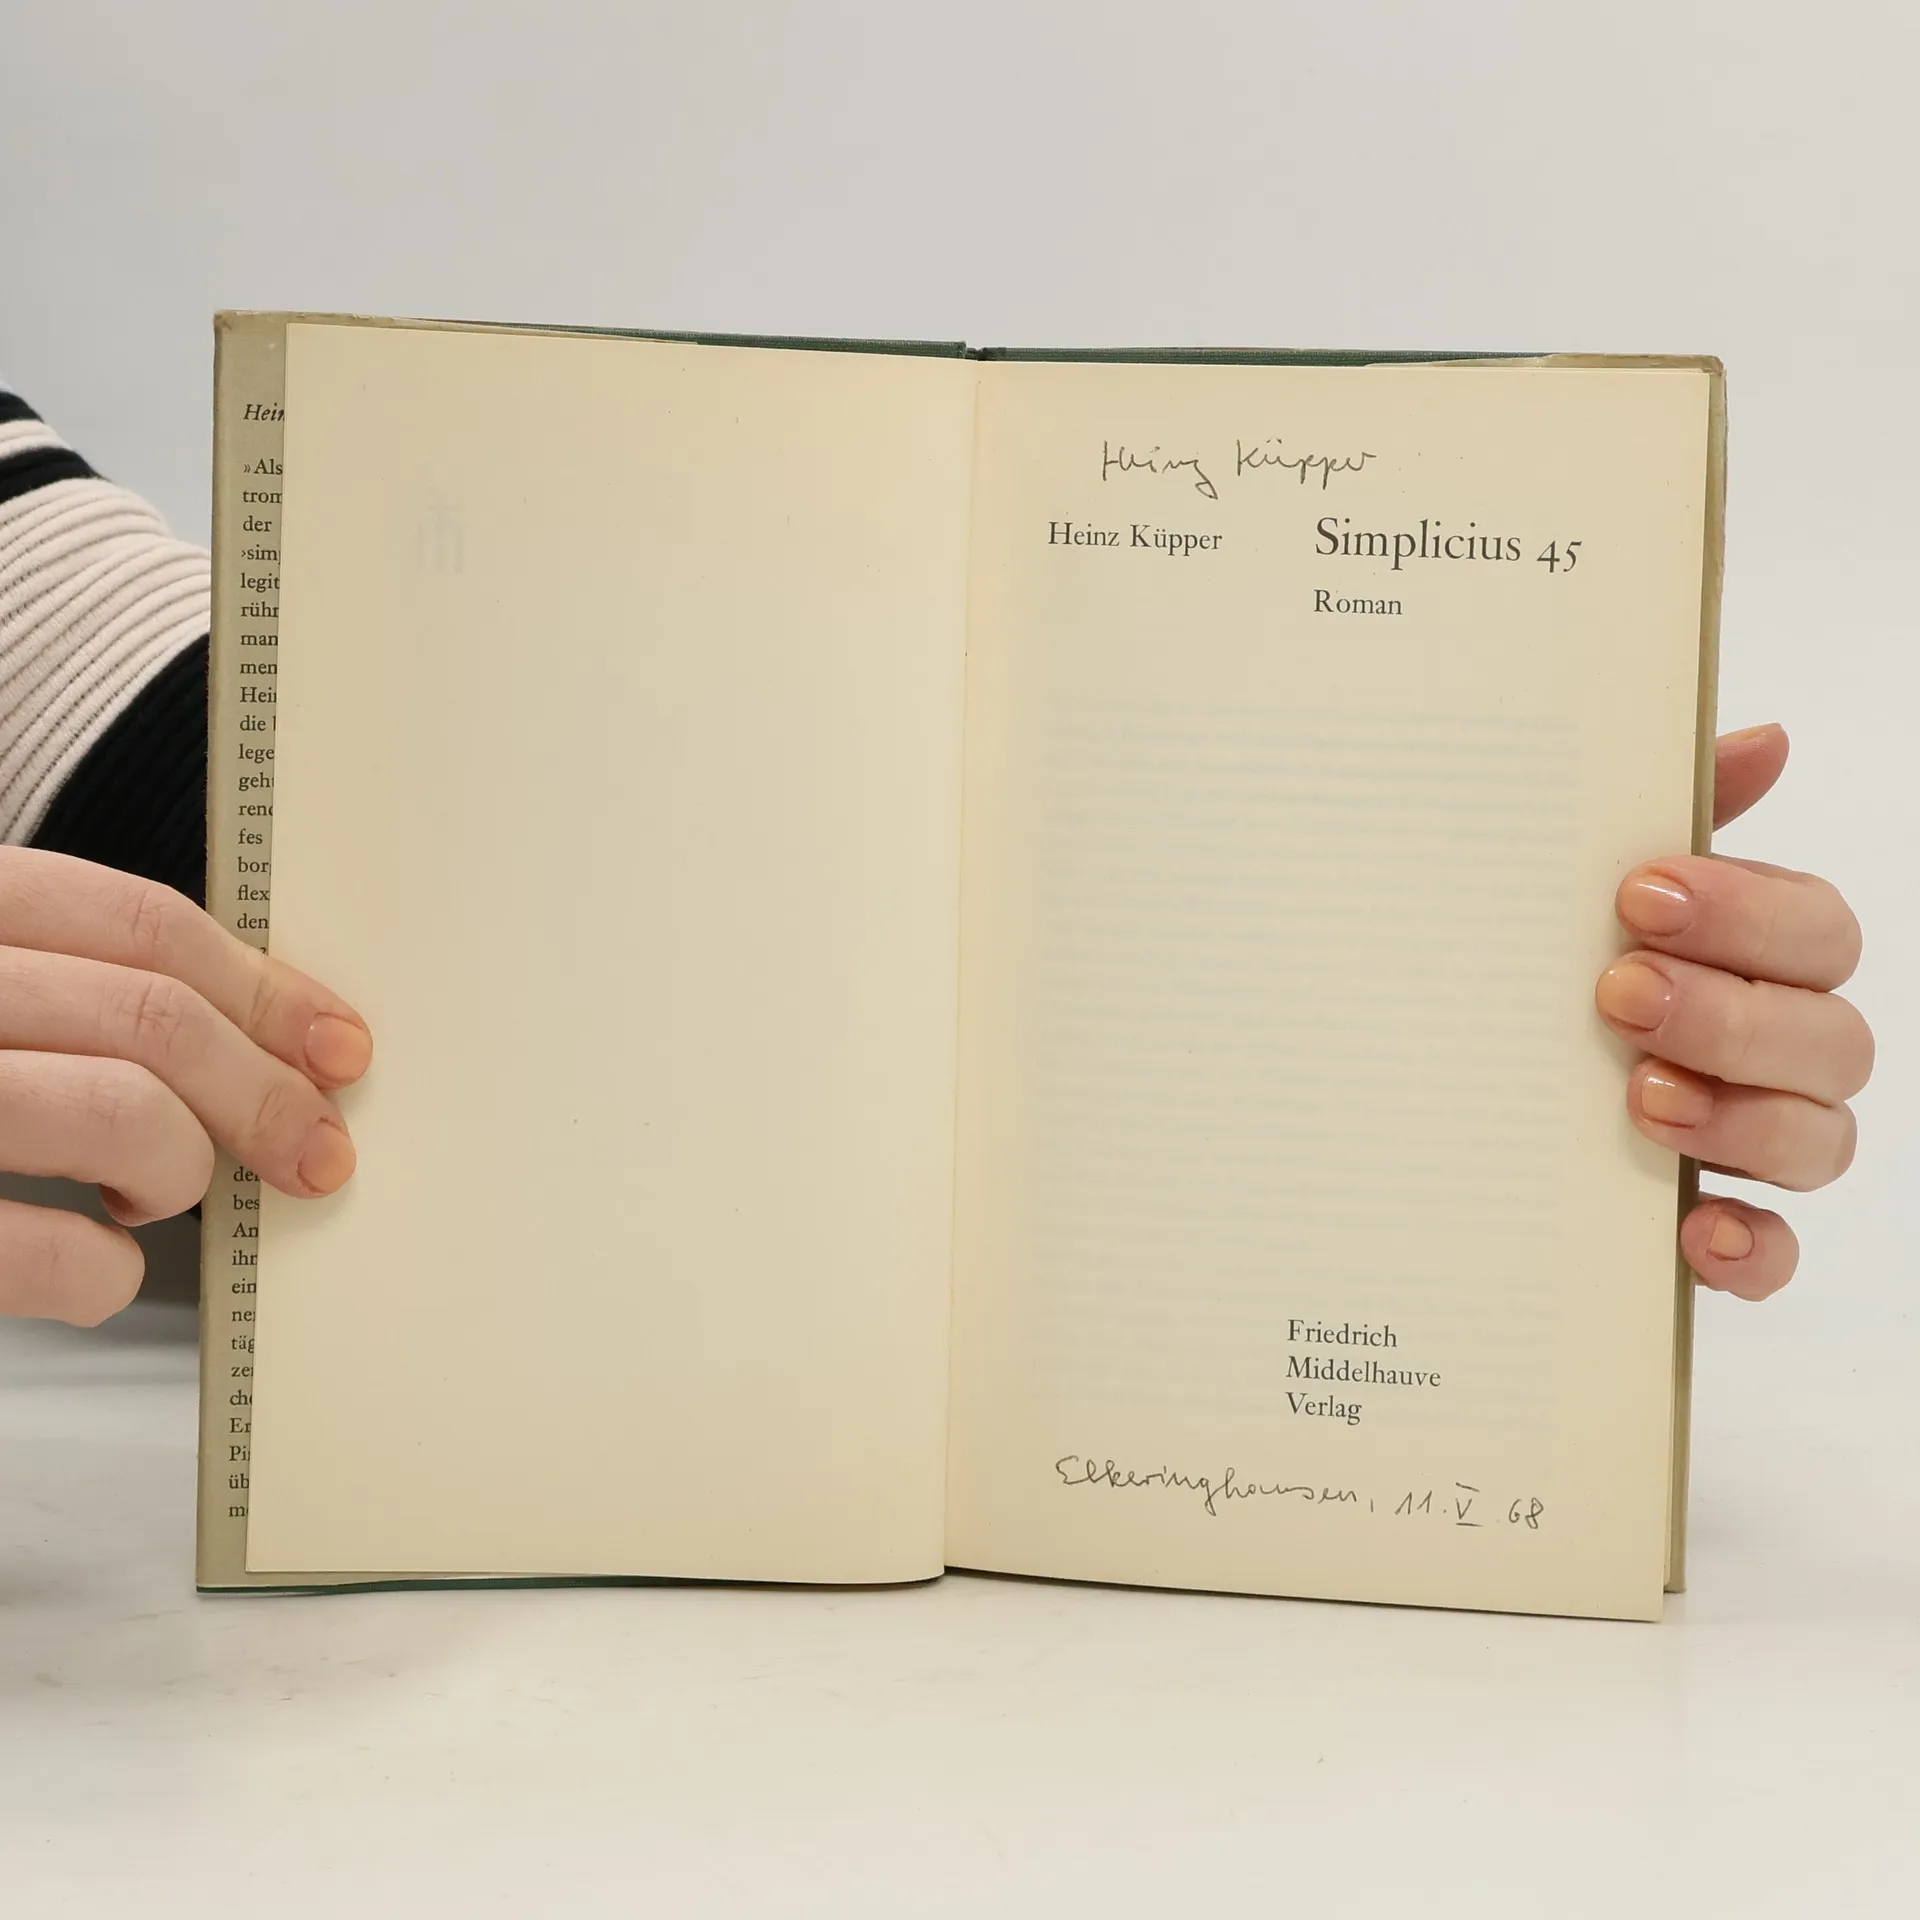 Hein
»Als
tron
der
›sim
legit
rühr
man
men
Hein
die
lege
geh
rend
fes
bor
flex
den
de
bes
An
ihr
ein
ne
täg
ze
che
Er
Pi
üb
me
Heinz Küpper
Heinz Küpper Simplicius 45
Roman
Friedrich
Middelhauve
Verlag
Elkeringhausen, 11. V. 68